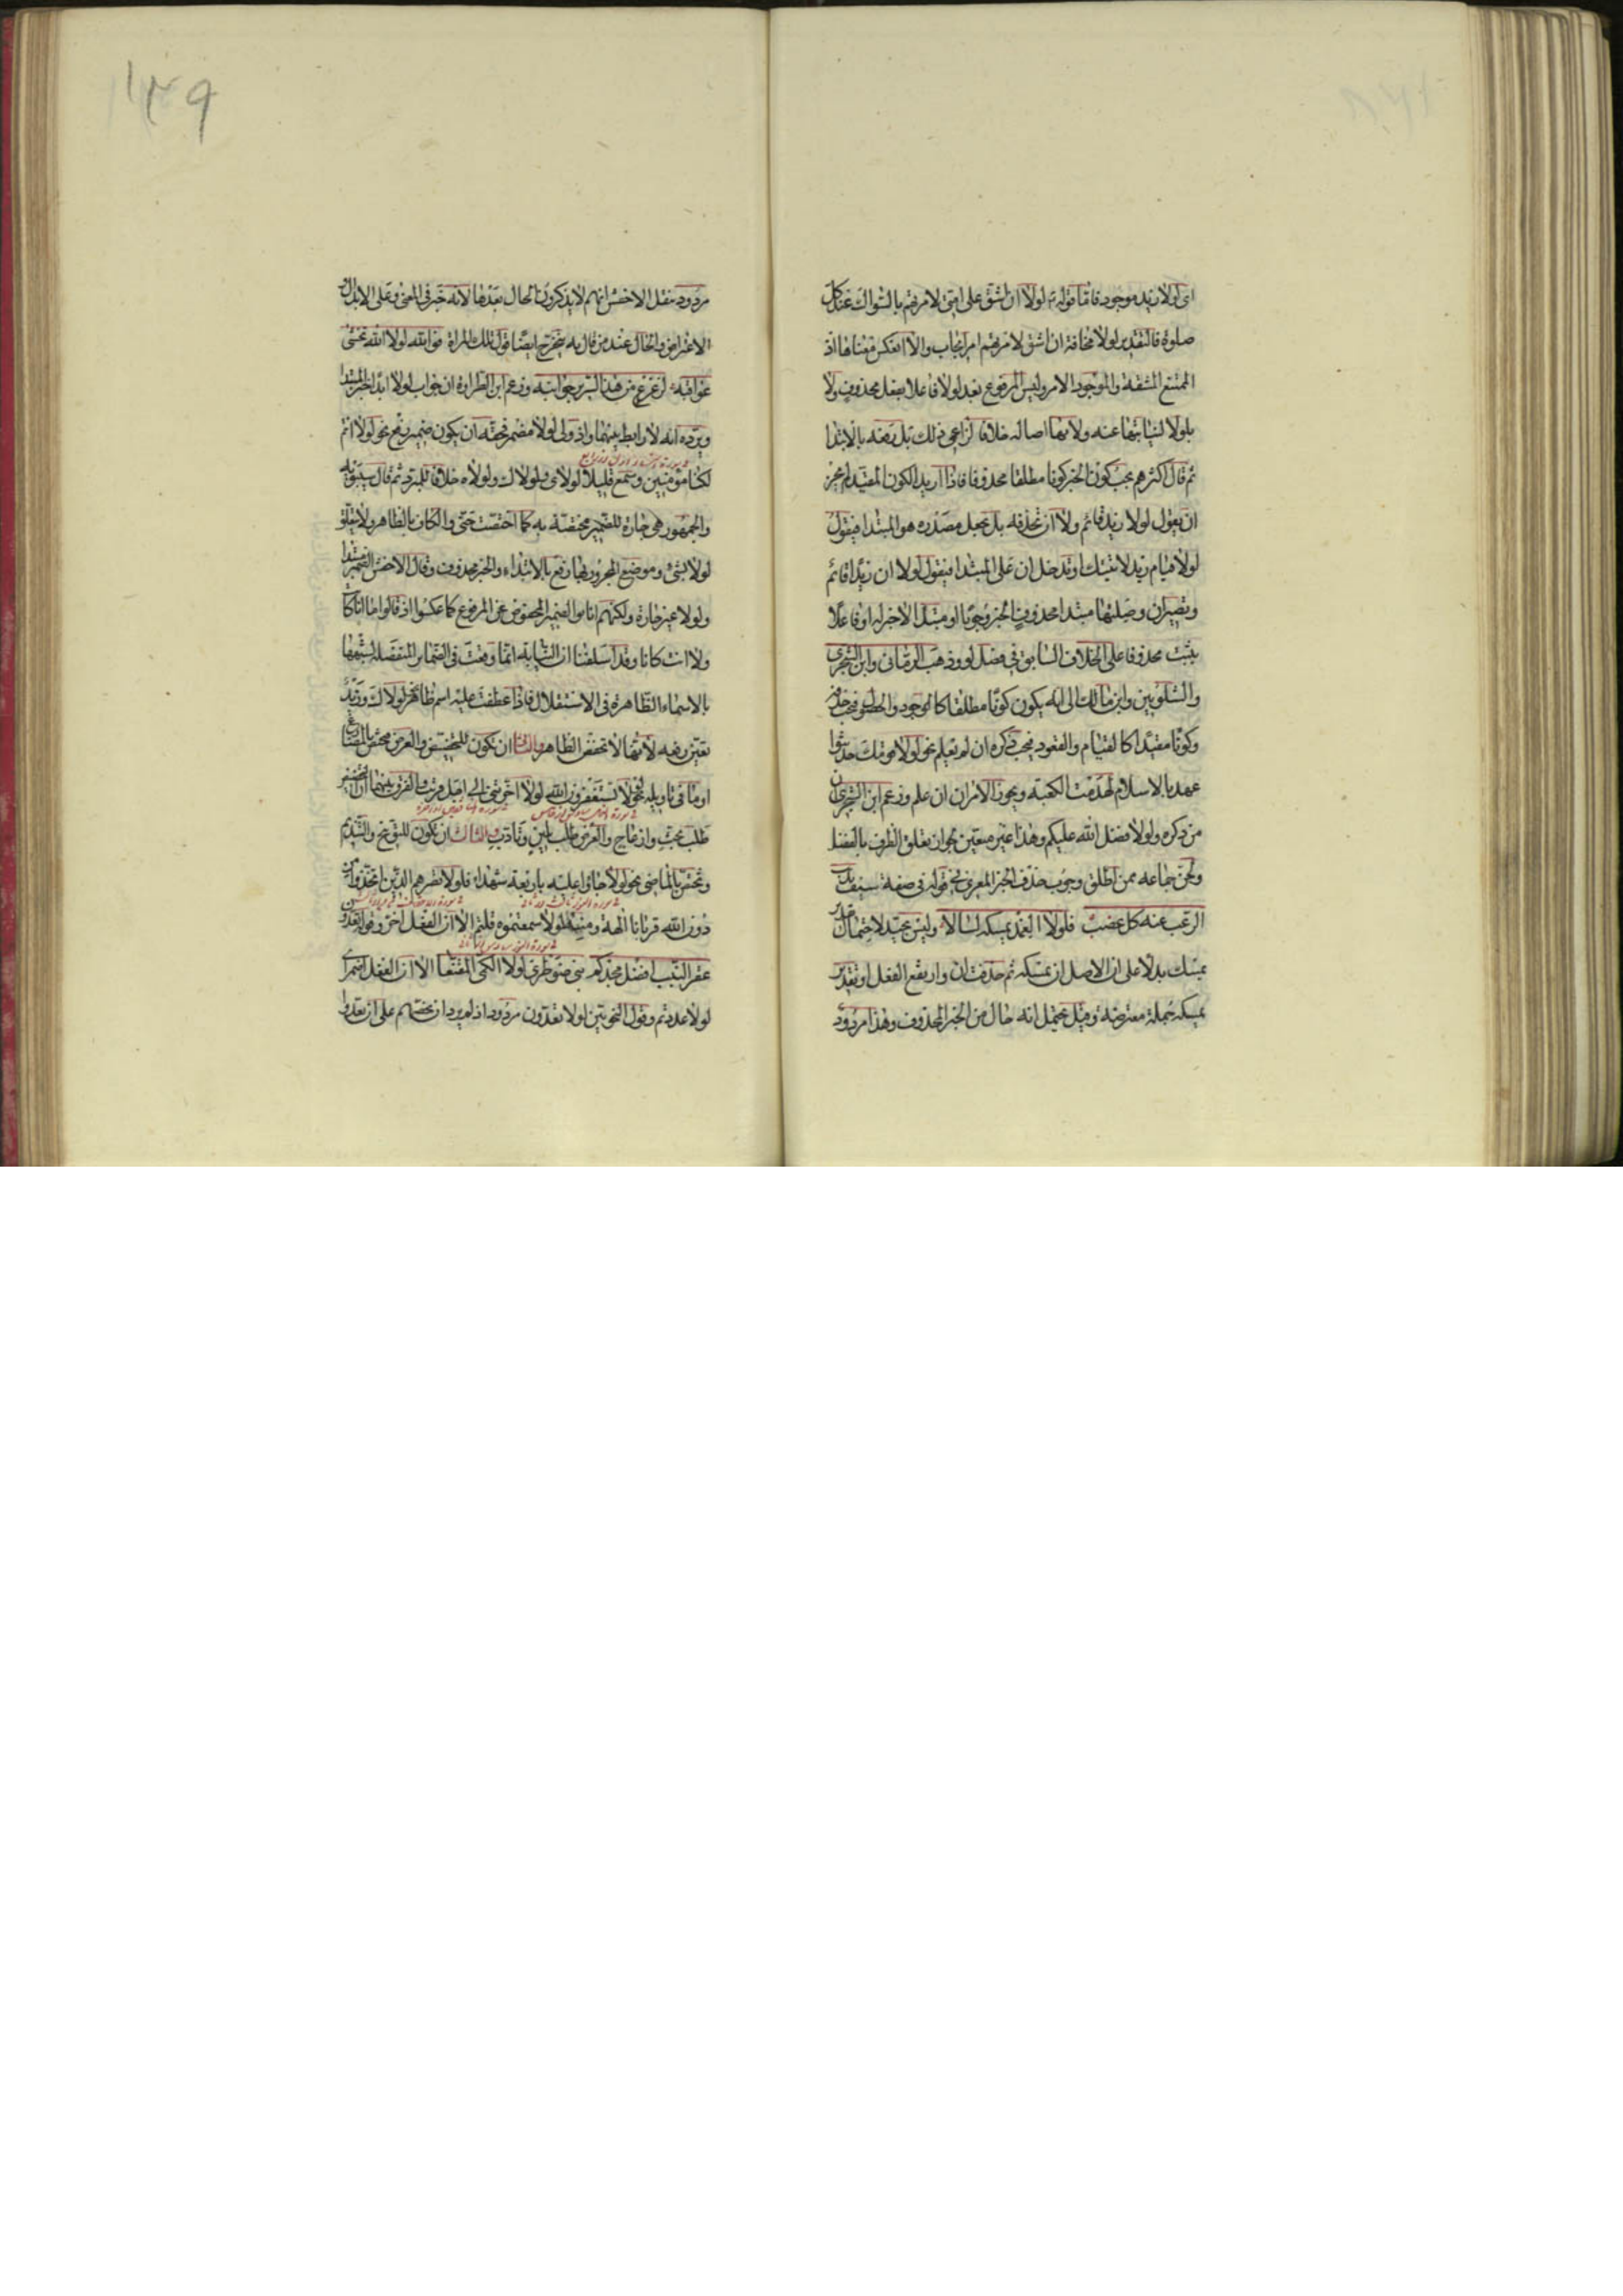 اى لولا زيد موجود فاما قوله ص لولا ان اشق على امتى لامرتهم بالسواك عند كل
صلوة فالتقدير لولا مخافة ان اشق لامرتهم امر ايجاب والا انعكس معناها اذ
الممتنع المشقة والموجود الامر وليس المرفوع بعد لولا فاعلا بفعل محذوف ولا
بلولا لنيابتها عنه ولا بها اصالة خلافا لزاعمى ذلك بل رفعه بالابتدا
ثم قال اكثرهم يجب كون الخبر كونا مطلقا محذوفا فاذا اريد الكون المقيد لم يجز
ان يقول لولا زيد قائم ولا ان تحذفه بل تجعل مصدره هو المبتدا فيقول
لولا قيام زيد لاتيتك او تدخل ان على المبتدا فيقول لولا ان زيدا قائم
وتصير ان وصلتها مبتدا محذوف الخبر وجوبا او مبتدا لا خبر له او فاعلا
بثبت محذوفا على الخلاف السابق فى فصل لو وذهب الرمانى وابن الشجرى
والشلوبين وابن مالك الى انه يكون كونا مطلقا كالوجود والحصول فيجب حذفه
وكونا مقيدا كالقيام والقعود فيجب ذكره ان لم يعلم نحو لولا قومك حديثوا
عهد بالاسلام لهدمت الكعبة ويجوز الامران ان علم وزعم ابن الشجرى ان
من ذكره ولولا فضل الله عليكم وهذا غير متعين لجواز تعلق الظرف بالفضل
ولحن جماعه ممن اطلق وجوب حذف الخبر المعرى فى قوله فى صفة سيف يذيب
الرعب منه كل عضب فلولا الغمد يمسكه لسالا وليس بجيد لاحتمال تقدير
يمسك بدلا على ان الاصل ان يمسكه ثم حذفت ان وارتفع الفعل او تقدير
يمسكه جملة معترضة وقيل يحتمل انه حال من الخبر المحذوف وهذا مردود
١٣٩
مردود بنقل الاخفش انهم لا يذكرون الحال بعدها لانه خبر فى المعنى وعلى الابدال و
الاعتراض والحال عند من قال به يتخرج ايضا قول تلك المراة فوالله لولا الله تخشى
عواقبه لزعزع من هذا السرير جوانبه وزعم ابن الطراوة ان جواب لولا ابدا خبر المبتدا
ويرده انه لا رابط بينهما واذ ولى لولا مضمر فحقه ان يكون ضمير رفع نحو لولا انتم
لكنا مؤمنين وسمع قليلا لولاى ولولاك ولولاه خلافا للمبرد ثم قال سيبويه
والجمهور هى جارة للضمير مختصة به كما اختصت حتى والكاف بالظاهر ولا يتعلق
لولا بشئ وموضع المجرور بها رفع بالابتداء والخبر محذوف وقال الاخفش الضمير مبتدا
ولولا غير جارة ولكنهم انابوا الضمير المخفوض عن المرفوع كما عكسوا اذ قالوا ما انا كانت
ولا انت كانا وقد اسلفنا ان النيابة انما وقعت فى الضماير المنفصلة لشبهها
بالاسماء الظاهرة فى الاستقلال فاذا عطفت عليه اسم ظاهر نحو لولاك وزيد
تعين رفعه لانها لا تخفض الظاهر والثانى ان تكون للتحضيض والعرض فتختص بالمضارع
او ما فى تاويله نحو لولا تستغفرون الله لولا اخرتنى الى اجل قريب والفرق بينهما ان التحضيض
طلب بحث وازعاج والعرض طلب بلين وتادب والثالث ان تكون للتوبيخ والتنديم
وتختص بالماضى نحو لولا جاؤا عليه باربعة شهداء فلولا نصرهم الذين اتخذوا من
دون الله قربانا الهة ومنه ولولا سمعتموه قلتم الا ان الفعل اخر وقوله تعدون
عقر النيب افضل مجدكم بنى ضوطرى لولا الكمى المقنعا الا ان الفعل اضمر اى
لولا عددتم وقول النحويين لولا تعدون مردود اذ لم يرد ان يحضهم على ان يعدوا